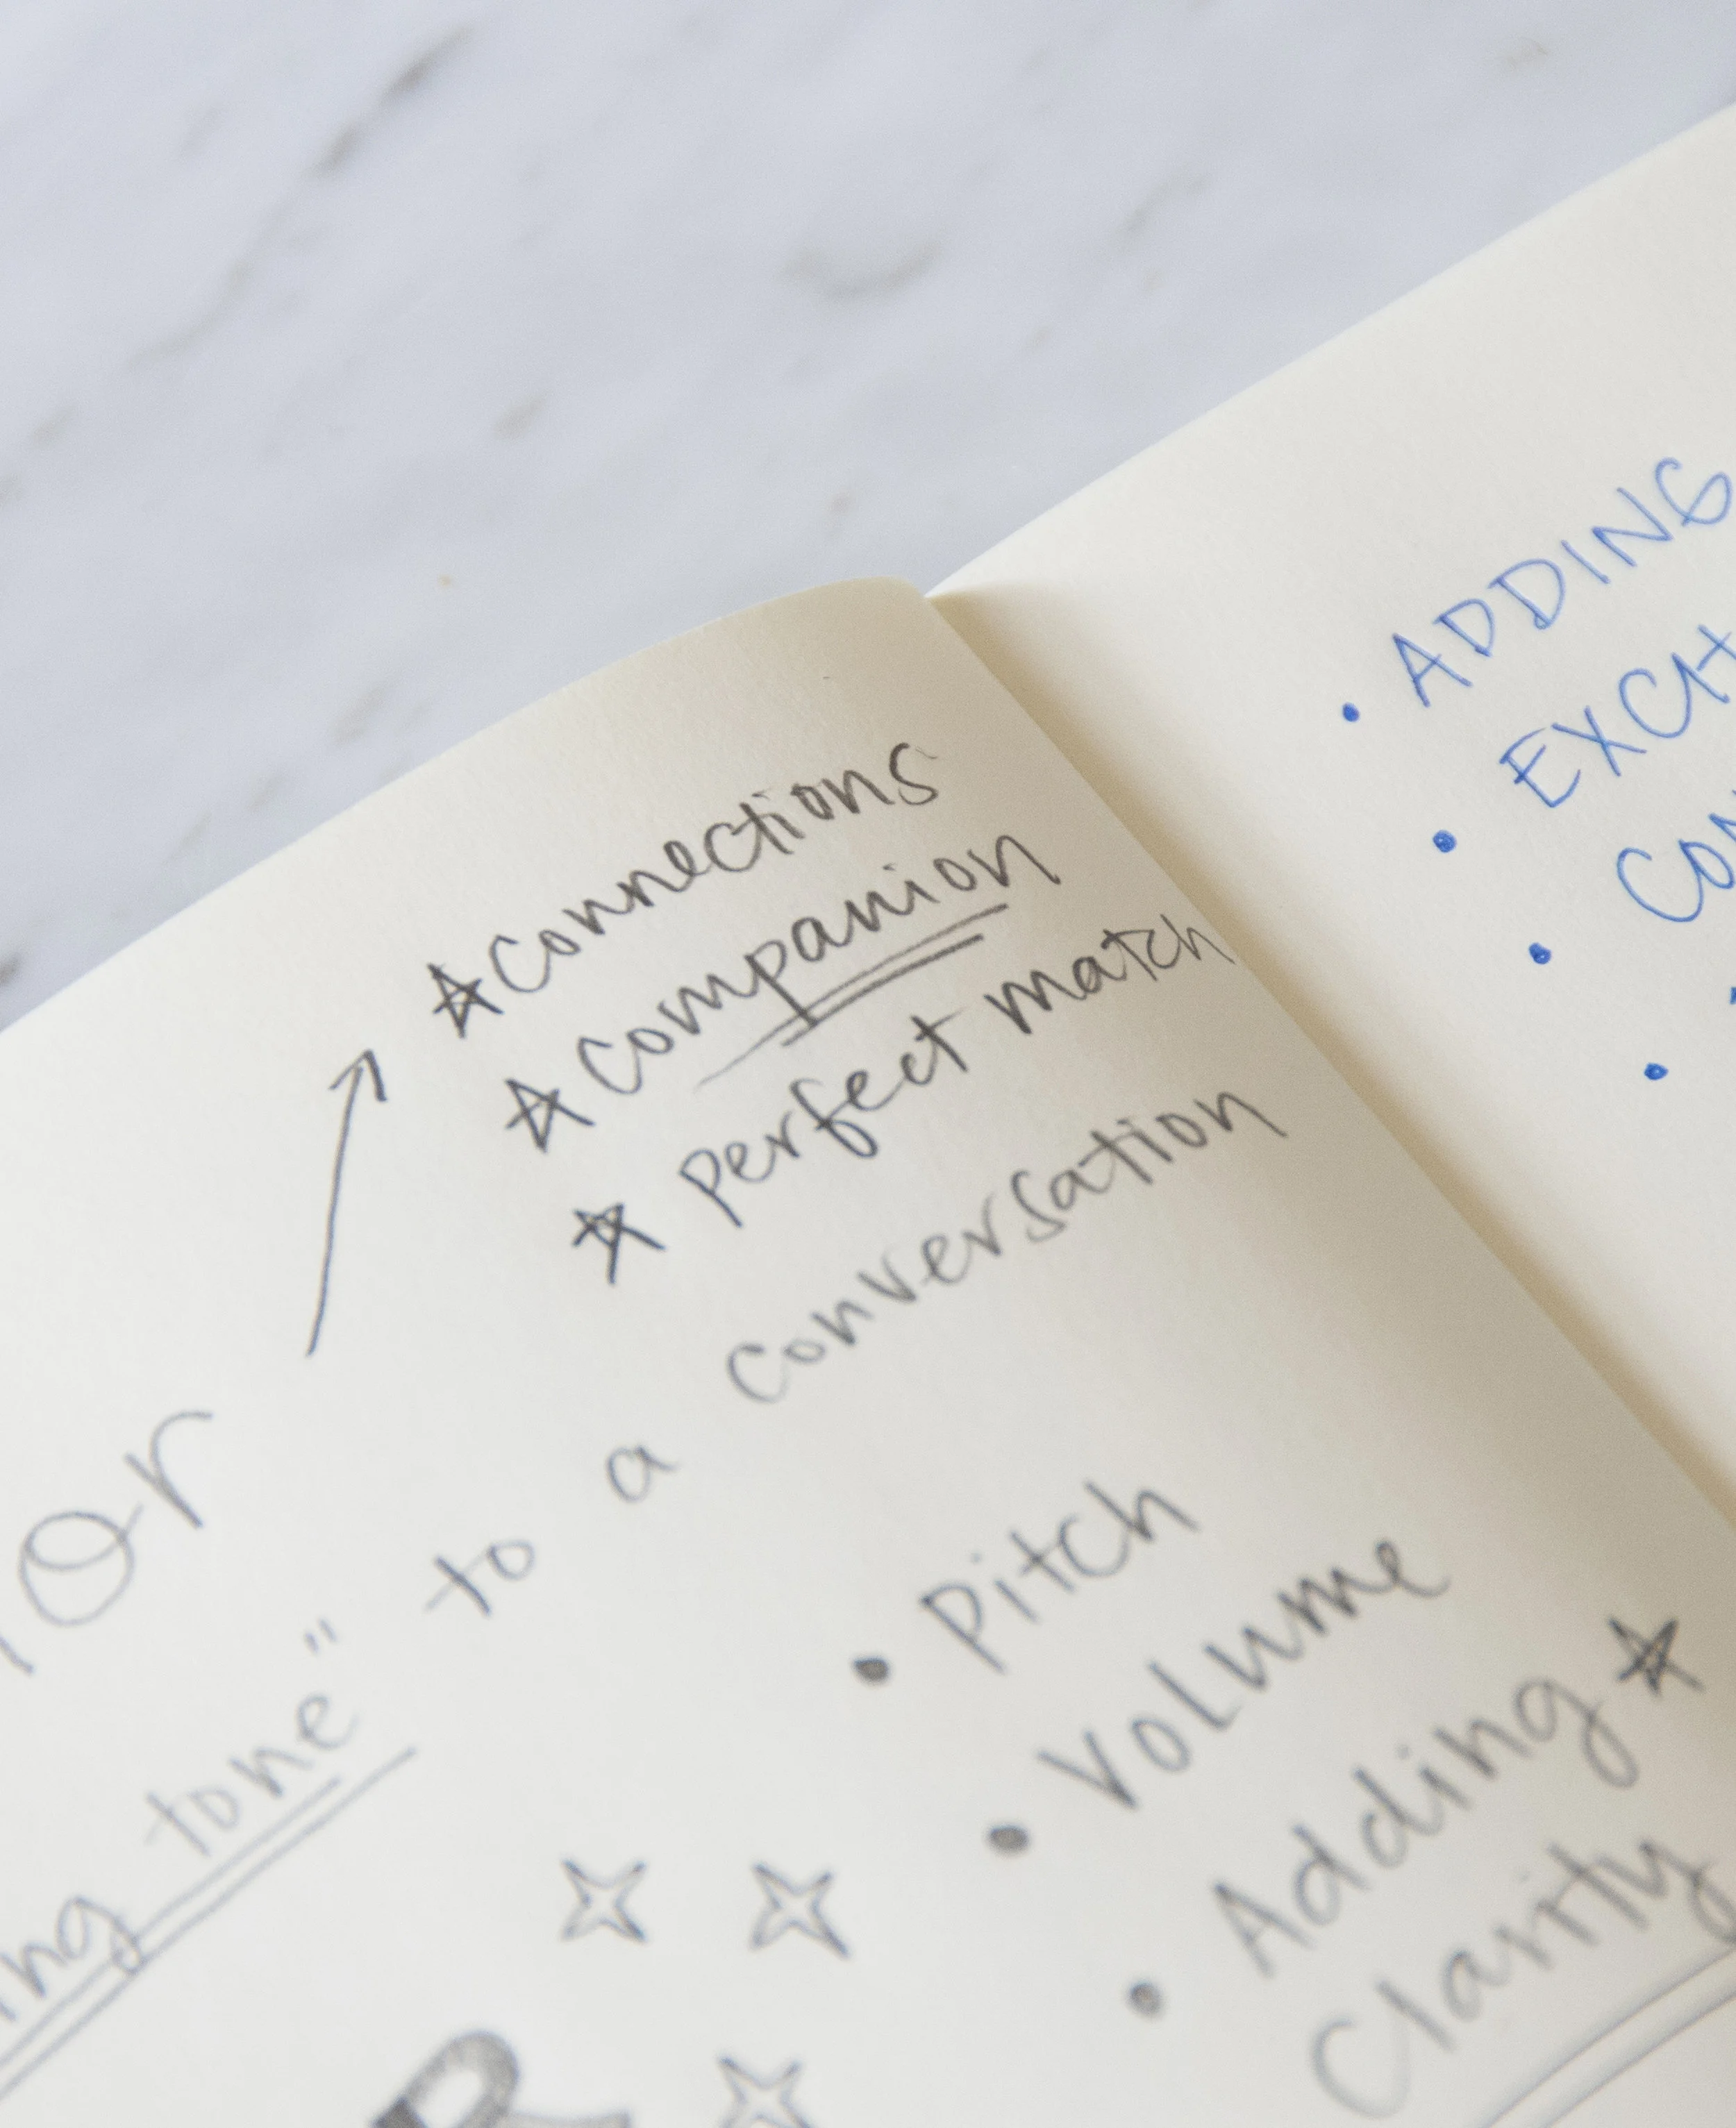 Connections
Companion
perfect match
or
tone" to a conversation
• Pitch
• Volume
• Adding
Clarity
R
• ADDING
•
•
•